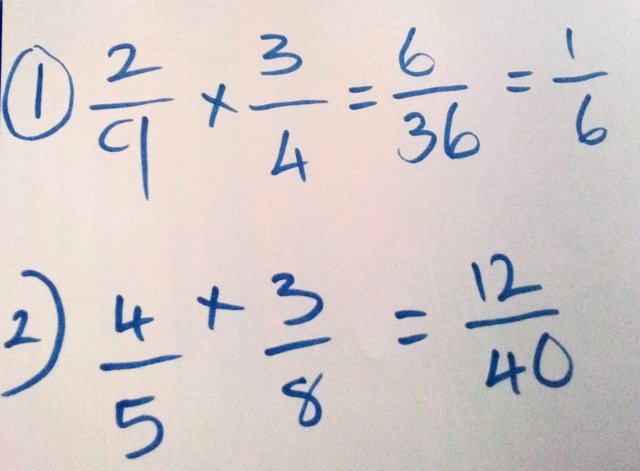 ① 2/9 × 3/4 = 6/36 = 1/6
2) 4/5 × 3/8 = 12/40